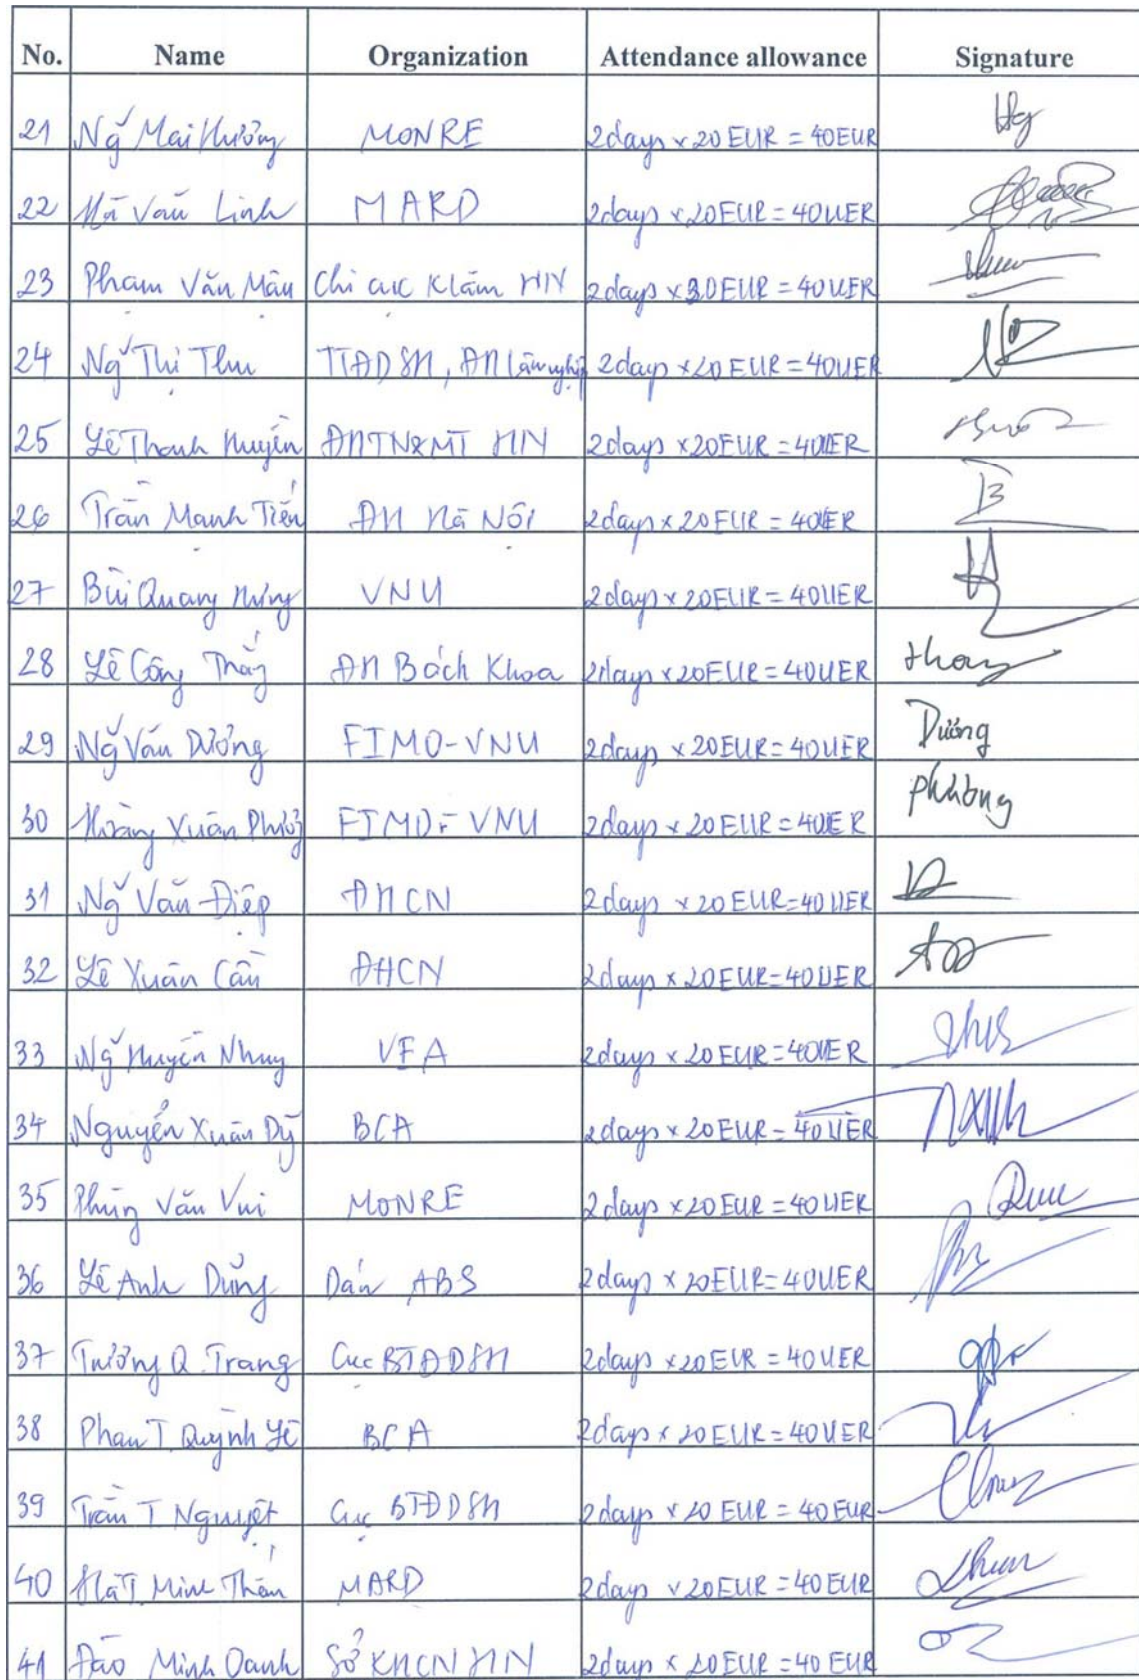 No. Name Organization Attendance allowance Signature
21 Ng̃ Mai Hương MONRE 2days x 20 EUR = 40EUR
22 Hà Văn Linh MARD 2days x 20EUR = 40UER
23 Phạm Văn Mậu Chi cục Klâm HN 2days x 20EUR = 40UER
24 Ng̃ Thị Thu TTĐDSH, ĐH Lâm nghiệp 2days x 20 EUR = 40UER
25 Lê Thanh Huyền ĐHTN&MT HN 2days x 20EUR = 40UER
26 Trần Mạnh Tiến ĐH Hà Nội 2days x 20EUR = 40UER
27 Bùi Quang Hưng VNU 2days x 20EUR = 40UER
28 Lê Công Thắng ĐH Bách Khoa 2days x 20EUR = 40UER thang
29 Ng̃ Văn Dưỡng FIMO-VNU 2days x 20EUR = 40UER Dưỡng
30 Hoàng Xuân Phương FIMO-VNU 2days x 20EUR = 40UER phương
31 Ng̃ Văn Điệp ĐHCN 2days x 20 EUR=40UER
32 Lê Xuân Cần ĐHCN 2days x 20EUR=40UER
33 Ng̃ Huyền Nhung VEA 2days x 20EUR=40UER
34 Nguyễn Xuân Dỹ BCA 2days x 20EUR = 40UER
35 Phùng Văn Vui MONRE 2days x 20EUR = 40UER
36 Lê Anh Dũng Dán ABS 2days x 20EUR=40UER
37 Trương Q. Trang Cục BTĐDSH 2days x 20EUR = 40UER
38 Phan T. Quỳnh Lê BCA 2days x 20EUR = 40UER
39 Trần T Nguyệt Cục BTĐDSH 2days x 20 EUR = 40 EUR
40 Hà T. Minh MARD 2days x 20EUR = 40 EUR
41 Đào Minh Oanh Sở KHCN HN 2days x 20EUR = 40 EUR